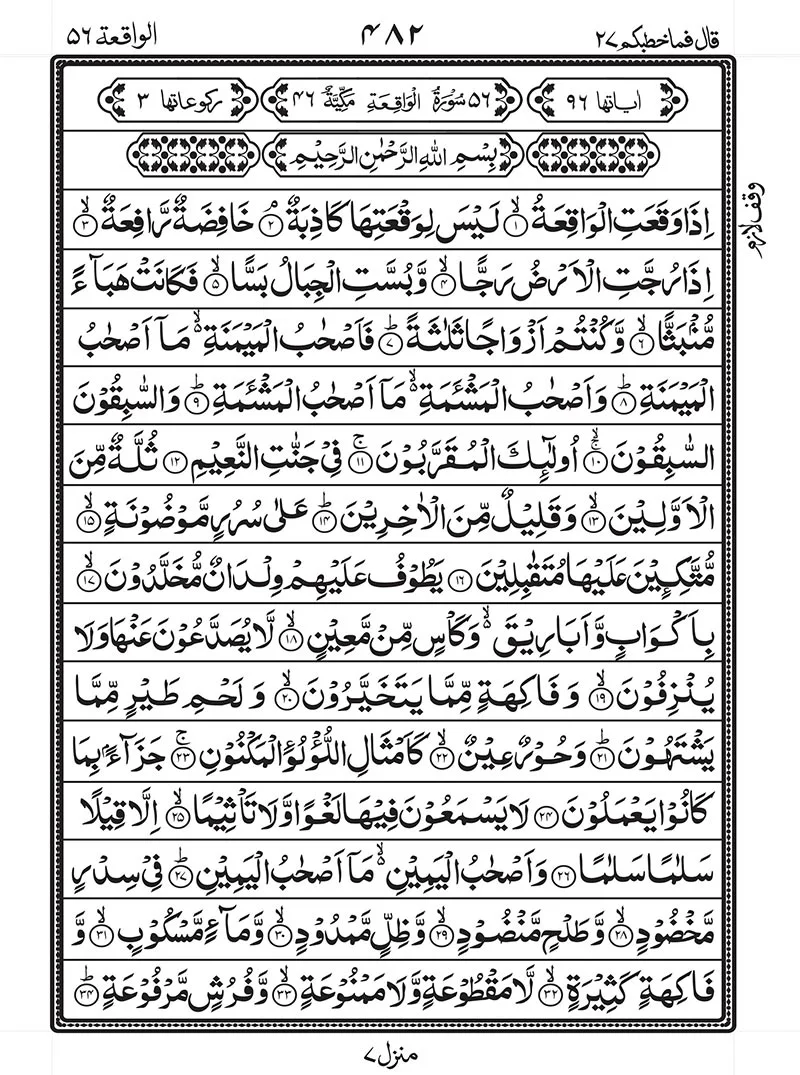 قال فما خطبكم ٢٧ ٤٨٢ الواقعة ٥٦
اٰیاتها ٩٦ ٥٦ سُوْرَةُ الْوَاقِعَةِ مَكِّیَّةٌ ٤٦ ركوعاتها ٣
بِسْمِ اللّٰهِ الرَّحْمٰنِ الرَّحِیْمِ
وقف لازم
اِذَا وَقَعَتِ الْوَاقِعَةُۙ۝۱ لَیْسَ لِوَقْعَتِهَا كَاذِبَةٌۘ۝۲ خَافِضَةٌ رَّافِعَةٌۙ۝۳
اِذَا رُجَّتِ الْاَرْضُ رَجًّاۙ۝۴ وَّ بُسَّتِ الْجِبَالُ بَسًّاۙ۝۵ فَكَانَتْ هَبَآءً
مُّنْۢبَثًّاۙ۝۶ وَّ كُنْتُمْ اَزْوَاجًا ثَلٰثَةًؕ۝۷ فَاَصْحٰبُ الْمَیْمَنَةِ ۙ۬ مَاۤ اَصْحٰبُ
الْمَیْمَنَةِؕ۝۸ وَ اَصْحٰبُ الْمَشْـَٔمَةِ ۙ۬ مَاۤ اَصْحٰبُ الْمَشْـَٔمَةِؕ۝۹ وَ السّٰبِقُوْنَ
السّٰبِقُوْنَۚۙ۝۱۰ اُولٰٓىِٕكَ الْمُقَرَّبُوْنَۚ۝۱۱ فِیْ جَنّٰتِ النَّعِیْمِ۝۱۲ ثُلَّةٌ مِّنَ
الْاَوَّلِیْنَۙ۝۱۳ وَ قَلِیْلٌ مِّنَ الْاٰخِرِیْنَؕ۝۱۴ عَلٰی سُرُرٍ مَّوْضُوْنَةٍۙ۝۱۵
مُّتَّكِـِٕیْنَ عَلَیْهَا مُتَقٰبِلِیْنَ۝۱۶ یَطُوْفُ عَلَیْهِمْ وِلْدَانٌ مُّخَلَّدُوْنَۙ۝۱۷
بِاَكْوَابٍ وَّ اَبَارِیْقَ ۙ۬ وَ كَاْسٍ مِّنْ مَّعِیْنٍۙ۝۱۸ لَّا یُصَدَّعُوْنَ عَنْهَا وَ لَا
یُنْزِفُوْنَۙ۝۱۹ وَ فَاكِهَةٍ مِّمَّا یَتَخَیَّرُوْنَۙ۝۲۰ وَ لَحْمِ طَیْرٍ مِّمَّا
یَشْتَهُوْنَؕ۝۲۱ وَ حُوْرٌ عِیْنٌۙ۝۲۲ كَاَمْثَالِ اللُّؤْلُؤِ الْمَكْنُوْنِۚ۝۲۳ جَزَآءًۢ بِمَا
كَانُوْا یَعْمَلُوْنَ۝۲۴ لَا یَسْمَعُوْنَ فِیْهَا لَغْوًا وَّ لَا تَاْثِیْمًاۙ۝۲۵ اِلَّا قِیْلًا
سَلٰمًا سَلٰمًا۝۲۶ وَ اَصْحٰبُ الْیَمِیْنِ ۙ۬ مَاۤ اَصْحٰبُ الْیَمِیْنِؕ۝۲۷ فِیْ سِدْرٍ
مَّخْضُوْدٍۙ۝۲۸ وَّ طَلْحٍ مَّنْضُوْدٍۙ۝۲۹ وَّ ظِلٍّ مَّمْدُوْدٍۙ۝۳۰ وَّ مَآءٍ مَّسْكُوْبٍۙ۝۳۱ وَّ
فَاكِهَةٍ كَثِیْرَةٍۙ۝۳۲ لَّا مَقْطُوْعَةٍ وَّ لَا مَمْنُوْعَةٍۙ۝۳۳ وَّ فُرُشٍ مَّرْفُوْعَةٍؕ۝۳۴
منزل ٧